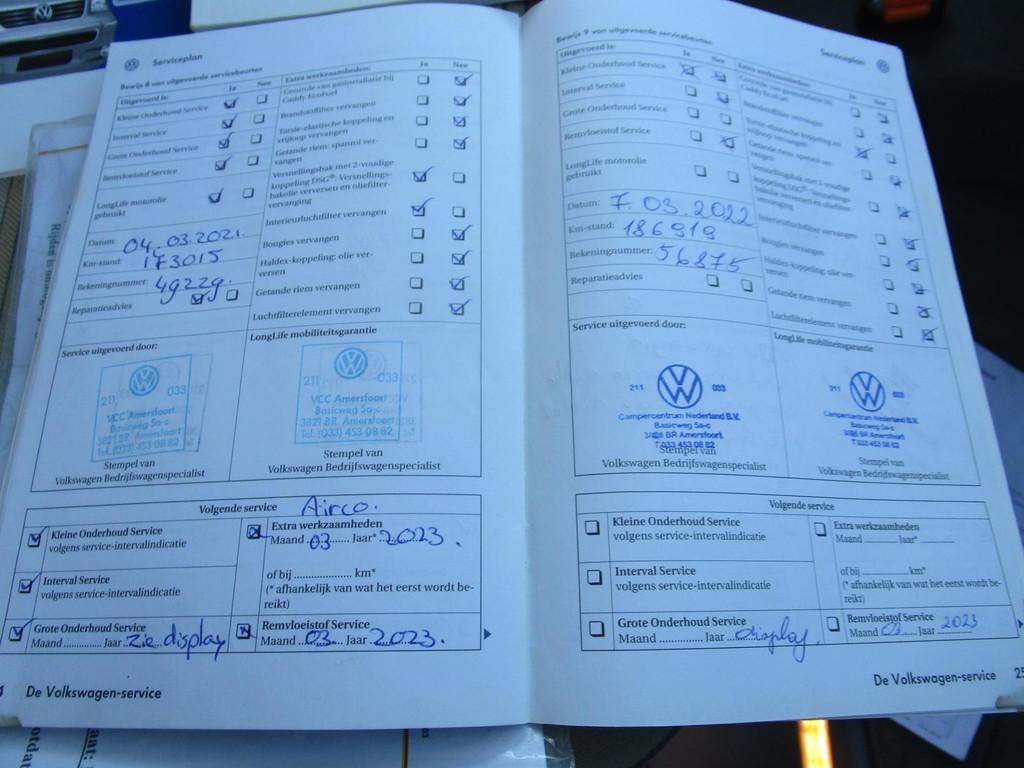 Serviceplan
Bewijs 8 van uitgevoerde servicebeurten
Uitgevoerd is:
Ja Nee
Kleine Onderhoud Service
Interval Service
Grote Onderhoud Service
Remvloeistof Service
LongLife motorolie
gebruikt
Datum: 04.03.2021.
Km-stand: 173015
Rekeningnummer: 49229.
Reparatieadvies
Extra werkzaamheden:
Ja Nee
Controle van gasinstallatie bij
Caddy EcoFuel
Brandstoffilter vervangen
Torsie-elastische koppeling en
vrijloop vervangen
Getande riem: spanrol ver-
vangen
Versnellingsbak met 2-voudige
koppeling DSG®: Versnellings-
bakolie verversen en oliefilter-
vervanging
Interieurluchtfilter vervangen
Bougies vervangen
Haldex-koppeling: olie ver-
versen
Getande riem vervangen
Luchtfilterelement vervangen
Service uitgevoerd door:
211 033
VCC Amersfoort
Basicweg 5a-c
3821 BR Amersfoort
Tel. (033) 453 08 82
Stempel van
Volkswagen Bedrijfswagenspecialist
LongLife mobiliteitsgarantie
211 033
VCC Amersfoort
Basicweg 5a-c
3821 BR Amersfoort
Tel. (033) 453 08 82
Stempel van
Volkswagen Bedrijfswagenspecialist
Volgende service Airco.
Kleine Onderhoud Service
volgens service-intervalindicatie
Interval Service
volgens service-intervalindicatie
Grote Onderhoud Service
Maand .............. Jaar zie display
Extra werkzaamheden
Maand 03 ........ Jaar* 2023.
of bij .................... km*
(* afhankelijk van wat het eerst wordt be-
reikt)
Remvloeistof Service
Maand 03 .... Jaar 2023.
De Volkswagen-service
Serviceplan
Bewijs 9 van uitgevoerde servicebeurten
Uitgevoerd is:
Ja Nee
Kleine Onderhoud Service
Interval Service
Grote Onderhoud Service
Remvloeistof Service
LongLife motorolie
gebruikt
Datum: 7.03.2022
Km-stand: 186919
Rekeningnummer: 56875
Reparatieadvies
Extra werkzaamheden:
Controle van gasinstallatie bij
Caddy EcoFuel
Brandstoffilter vervangen
Torsie-elastische koppeling en
vrijloop vervangen
Getande riem: spanrol ver-
vangen
Versnellingsbak met 2-voudige
koppeling DSG®: Versnellings-
bakolie verversen en oliefilter-
vervanging
Interieurluchtfilter vervangen
Bougies vervangen
Haldex-koppeling: olie ver-
versen
Getande riem vervangen
Luchtfilterelement vervangen
Service uitgevoerd door:
211 033
Campercentrum Nederland B.V.
Basicweg 5a-c
BR Amersfoort
T 033 453 08 82
Stempel van
Volkswagen Bedrijfswagenspecialist
LongLife mobiliteitsgarantie
211 033
Campercentrum Nederland B.V.
Basicweg 5a-c
BR Amersfoort
T 033 453 08 82
Stempel van
Volkswagen Bedrijfswagenspecialist
Volgende service
Kleine Onderhoud Service
volgens service-intervalindicatie
Interval Service
volgens service-intervalindicatie
Grote Onderhoud Service
Maand .............. Jaar display.
Extra werkzaamheden
Maand .......... Jaar* ..........
of bij .................... km*
(* afhankelijk van wat het eerst wordt be-
reikt)
Remvloeistof Service
Maand 03 .... Jaar 2023
De Volkswagen-service 25